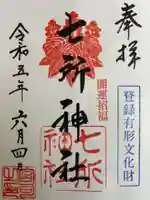 奉拝
登録有形文化財
開運招福
七所神社
七所神社
令和五年六月四日